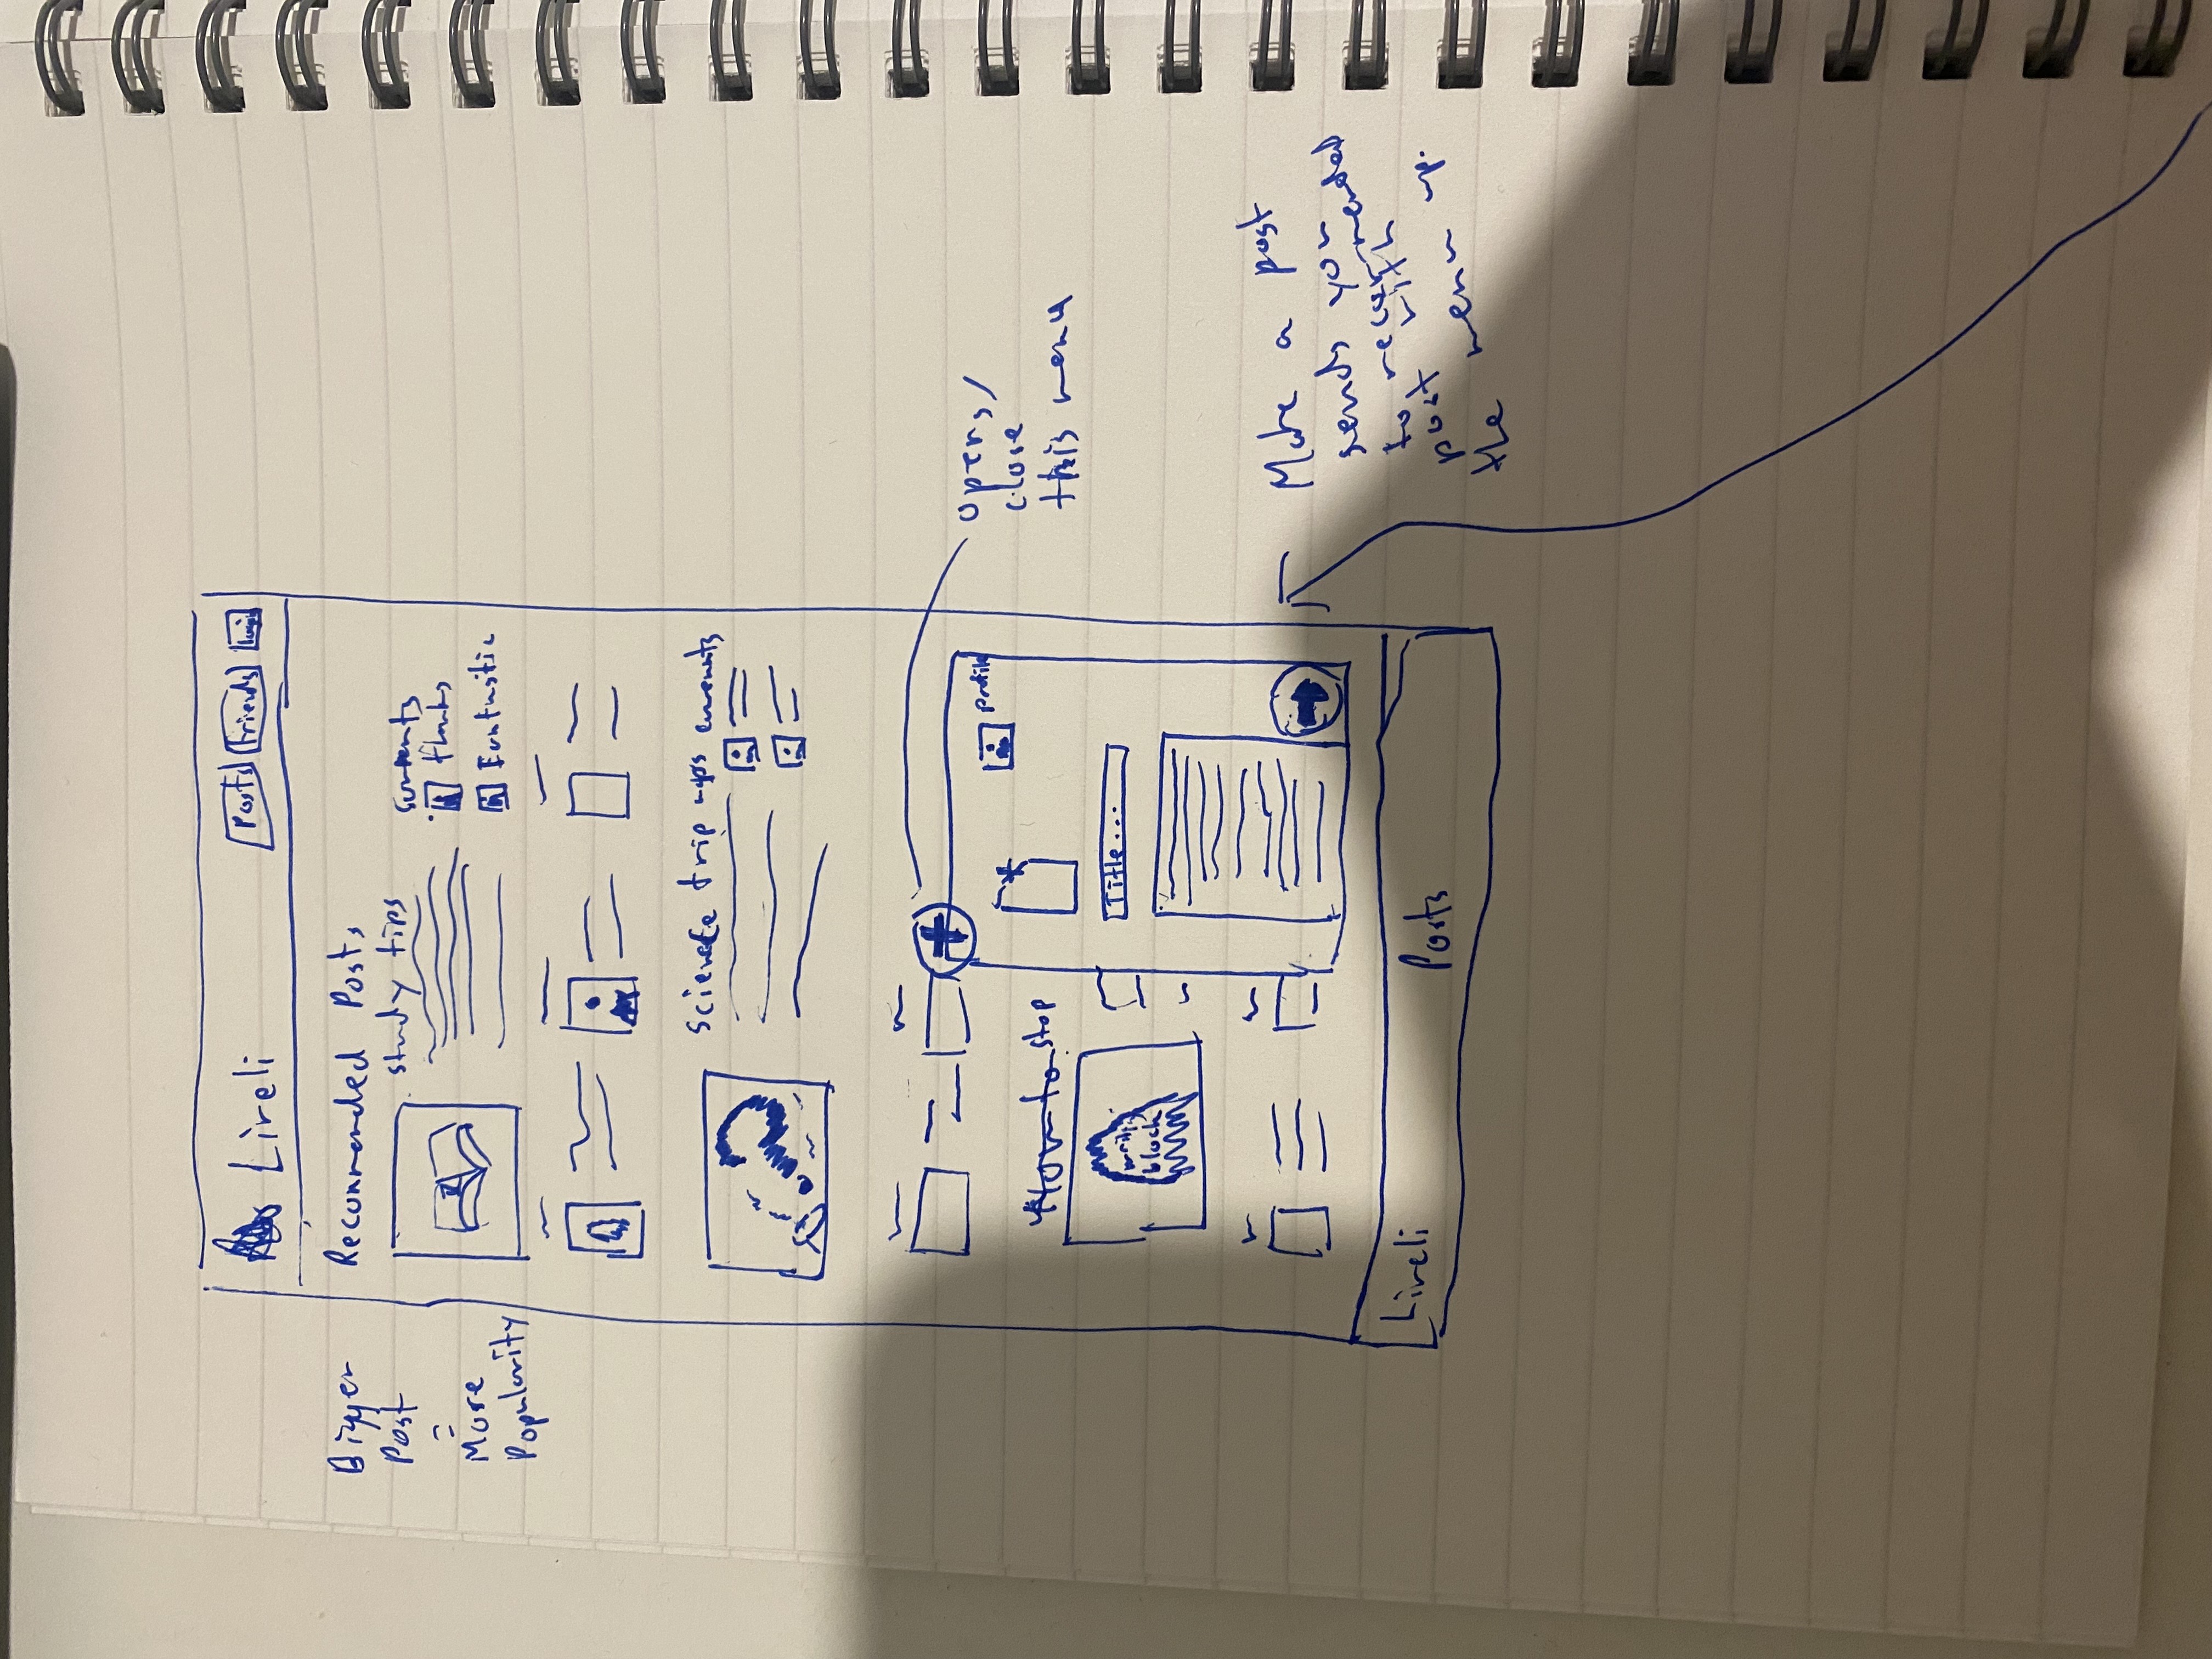 Lireli
Posts
Friends
Login
Bigger
Post
=
More
Popularity
Recommended Posts
study tips
comments
thanks
Fantastic
science trip maps comments
opens/
close
this menu
profile
How to stop
writing
block
Title...
Make a post
sends you
to recommended
post with
the menu up.
Lireli
Posts